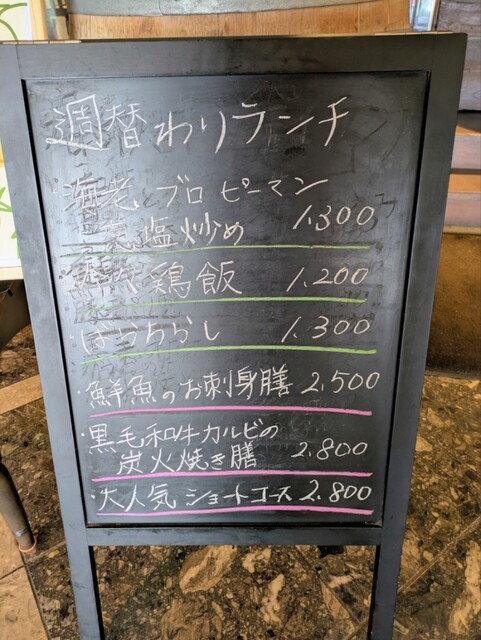 週替わりランチ
・海老 ブロ ピーマン
塩炒め 1,300
鶏飯 1,200
・ばらちらし 1,300
・鮮魚のお刺身膳 2,500
・黒毛和牛カルビの
炭火焼き膳 2,800
・大人気 ショートコース 2,800